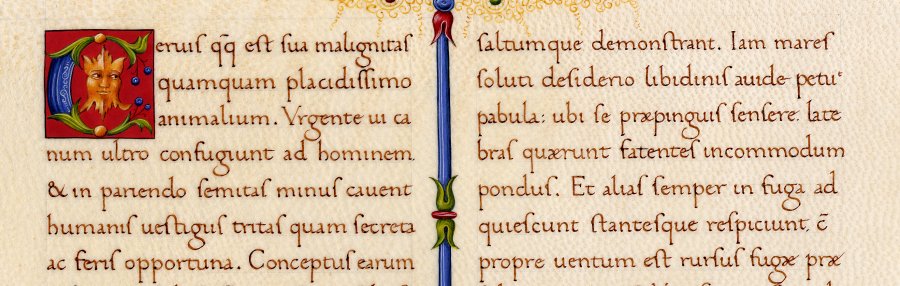 Ceruiſ qq̃ eſt ſua malignitaſ
quamquam placidiſſimo
animalium. Vrgente ui ca
num ultro confugiunt ad hominem.
& in pariendo ſemitaſ minuſ cauent
humaniſ ueſtigiiſ tritaſ quam ſecreta
ac feriſ opportuna. Conceptuſ earum
ſaltumque demonſtrant. Iam mareſ
ſoluti deſiderio libidiniſ auide petu
pabula: ubi ſe præpinguiſ ſenſere: late
braſ quærunt fatenteſ incommodum
ponduſ. Et aliaſ ſemper in fuga ad
quieſcunt ſtanteſque reſpiciunt, c̃
propre uentum eſt rurſuſ fugæ præ